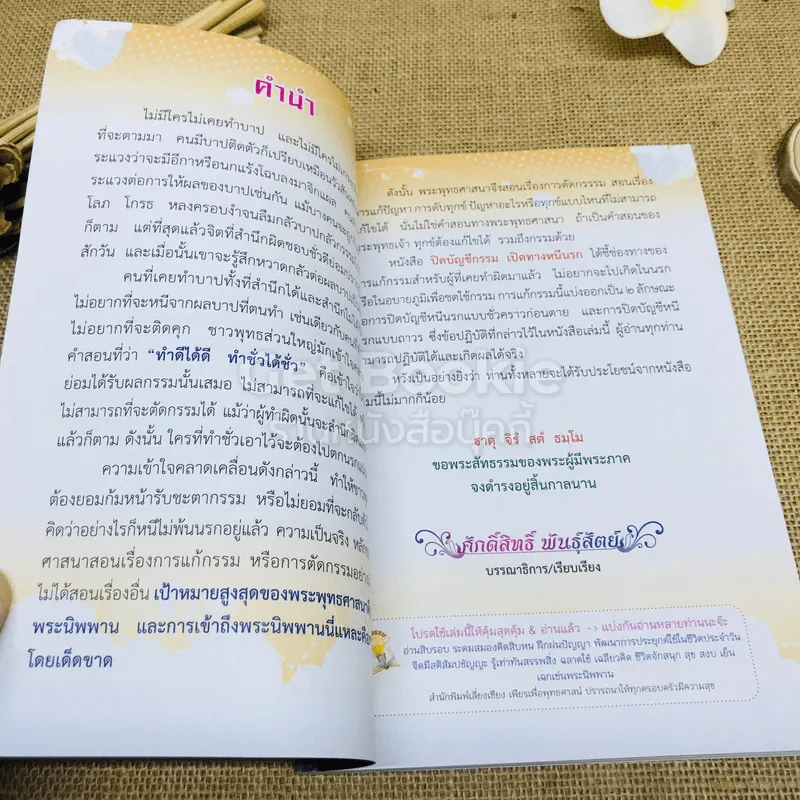 คำนำ
ไม่มีใครไม่เคยทำบาป และไม่มีใครไม่
ที่จะตามมา คนมีบาปติดตัวก็เปรียบเหมือนวัวสัน
ระแวงว่าจะมีอีกาหรือนกแร้งโฉบลงมาจิกแผล
ระแวงต่อการให้ผลของบาปเช่นกัน แม้บางคนจะ
โลภ โกรธ หลงครอบงำจนลืมกลัวบาปกลัวกรรม
ก็ตาม แต่ที่สุดแล้วจิตที่สำนึกผิดชอบชั่วดีย่อม
สักวัน และเมื่อนั้นเขาจะรู้สึกหวาดกลัวต่อผลบาป
คนที่เคยทำบาปทั้งที่สำนึกได้และสำนึกไม่ได้
ไม่อยากที่จะหนีจากผลบาปที่ตนทำ เช่นเดียวกับคน
ไม่อยากที่จะติดคุก ชาวพุทธส่วนใหญ่มักเข้าใจ
คำสอนที่ว่า “ทำดีได้ดี ทำชั่วได้ชั่ว” คือเข้าใจว่า
ย่อมได้รับผลกรรมนั้นเสมอ ไม่สามารถที่จะแก้ไขได้
ไม่สามารถที่จะตัดกรรมได้ แม้ว่าผู้ทำผิดนั้นจะสำนึก
แล้วก็ตาม ดังนั้น ใครที่ทำชั่วเอาไว้จะต้องไปตกนรก
ความเข้าใจคลาดเคลื่อนดังกล่าวนี้ ทำให้ชาว
ต้องยอมก้มหน้ารับชะตากรรม หรือไม่ยอมที่จะกลับ
คิดว่าอย่างไรก็หนีไม่พ้นนรกอยู่แล้ว ความเป็นจริง หลัก
ศาสนาสอนเรื่องการแก้กรรม หรือการตัดกรรมอย่าง
ไม่ได้สอนเรื่องอื่น เป้าหมายสูงสุดของพระพุทธศาสนา
พระนิพพาน และการเข้าถึงพระนิพพานนี่แหละคือ
โดยเด็ดขาด
ดังนั้น พระพุทธศาสนาจึงสอนเรื่องการตัดกรรม สอนเรื่อง
การแก้ปัญหา การดับทุกข์ ปัญหาอะไรหรือทุกข์แบบไหนที่ไม่สามารถ
แก้ไขได้ นั่นไม่ใช่คำสอนทางพระพุทธศาสนา ถ้าเป็นคำสอนของ
พระพุทธเจ้า ทุกข์ต้องแก้ไขได้ รวมถึงกรรมด้วย
หนังสือ ปิดบัญชีกรรม เปิดทางหนีนรก ได้ชี้ช่องทางของ
การแก้กรรมสำหรับผู้ที่เคยทำผิดมาแล้ว ไม่อยากจะไปเกิดในนรก
หรือในอบายภูมิเพื่อชดใช้กรรม การแก้กรรมนี้แบ่งออกเป็น ๒ ลักษณะ
คือการปิดบัญชีหนีนรกแบบชั่วคราวก่อนตาย และการปิดบัญชีหนี
นรกแบบถาวร ซึ่งข้อปฏิบัติที่กล่าวไว้ในหนังสือเล่มนี้ ผู้อ่านทุกท่าน
สามารถปฏิบัติได้และเกิดผลได้จริง
หวังเป็นอย่างยิ่งว่า ท่านทั้งหลายจะได้รับประโยชน์จากหนังสือ
เล่มนี้ไม่มากก็น้อย
GetBookie
ร้านหนังสือบุ๊คกี้
ฐาตุ จิรํ สตํ ธมฺโม
ขอพระสัทธรรมของพระผู้มีพระภาค
จงดำรงอยู่สิ้นกาลนาน
ศักดิ์สิทธิ์ พันธุ์สัตย์
บรรณาธิการ/เรียบเรียง
โปรดใช้เล่มนี้ให้คุ้มสุดคุ้ม & อ่านแล้ว -> แบ่งกันอ่านหลายท่านนะจ๊ะ
อ่านสิบรอบ ระดมสมองคิดสิบหน ฝึกฝนปัญญา พัฒนาการประยุกต์ใช้ในชีวิตประจำวัน
จิตมีสติสัมปชัญญะ รู้เท่าทันสรรพสิ่ง ฉลาดใช้ เฉลียวคิด ชีวิตจักสนุก สุข สงบ เย็น
เฉกเช่นพระนิพพาน
สำนักพิมพ์เลี่ยงเชียง เพียรเพื่อพุทธศาสน์ ปรารถนาให้ทุกครอบครัวมีความสุข